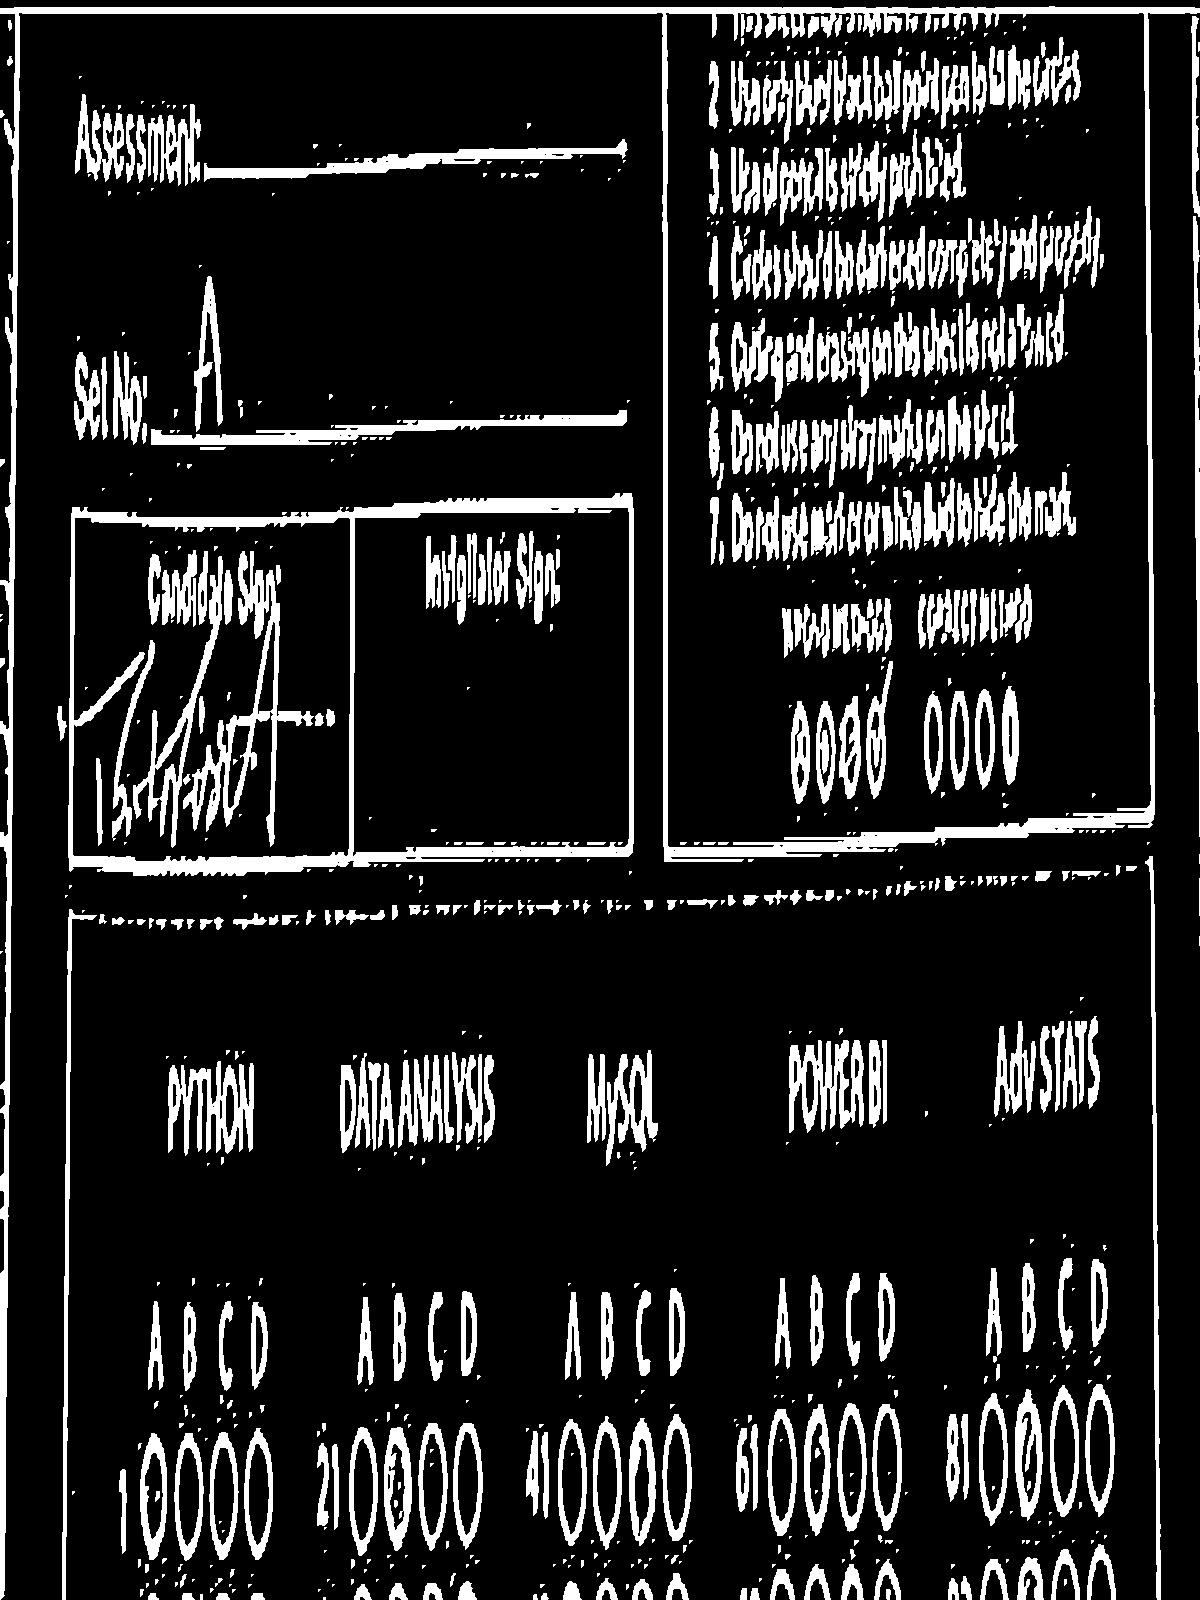 Assessment:
Set No: A
Candidate Sign:
Invigilator Sign:
2. Use only blue/black ball point pen to fill the circles.
3. Use of pencil is strictly prohibited.
4. Circles should be darkened completely and properly.
5. Cutting and erasing on this sheet is not allowed.
6. Do not use any stray marks on the sheet.
7. Do not use marker or white fluid to hide the mark.
WRONG METHODS CORRECT METHOD
PYTHON DATA ANALYSIS MySQL POWER BI Adv STATS
A B C D A B C D A B C D A B C D A B C D
1 21 41 61 81